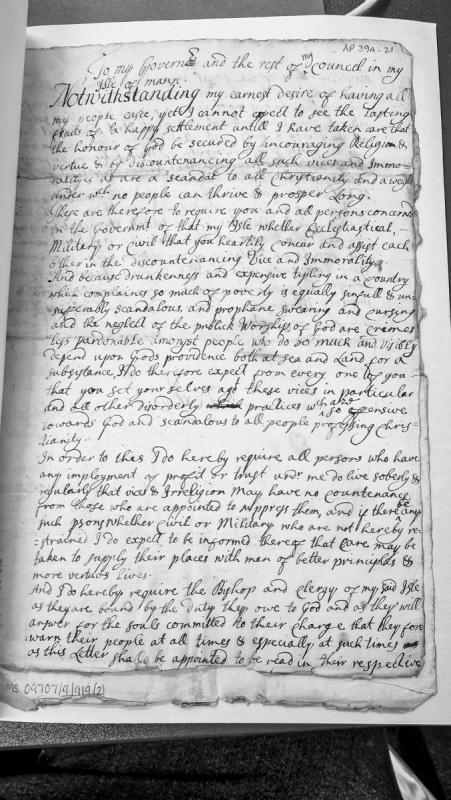 AP 39A-21
To my Governr and the rest of my Councel in my
Isle of mann.
Notwithstanding my earnest desire of having all
my people easie, yet I cannot expect to see the lasting
fruits of so happy settlement untill I have taken care that
the honour of God be secured by incouraging Religion &
vertue & by discountenancing all such vices and Immo=
=ralities as are a scandal to all Christianity and a weight
under wch no people can thrive & prosper Long.
These are therefore to require you and all persons concernd
in the Governmt of that my Isle whether Ecclesiastical,
Military or civil that you heartily concur and assist each
other in the discountenancing Vice and Immorality.
And because drunkenness and expensive tipling in a Country
which complaines so much of poverty is equally sinfull & un=
=sufferably scandalous, and prophane swearing and cursing
and the neglect of the publick Worship of God are crimes
less pardonable amongst people who do so much and visibly
depend upon Gods providence both at sea and Land for a
subsistance, I do therefore expect from every one of you
that you set your selves agt these vices in particular
and all other disorderly practices wch are so offensive
towards God and scandalous to all people professing Chris=
=tianity.
In order to this I do hereby require all persons who have
any imployment of profit or trust undr me do live soberly &
regularly that vice & Irreligion may have no countenance
from those who are appointed to suppress them, and if there be any
such psons whether Civil or Military who are not hereby re=
=strained I do expect to be informed thereof that Care may be
taken to supply their places with men of better principles &
more vertuos lives.
And I do hereby require the Bishop and Clergy of my said Isle
as they are bound by the duty they owe to God and as they will
answer for the souls committed to their charge that they fore
warn their people at all times & especially at such times
as this Letter shall be appointed to be read in their respective
MS 09707/9/9/9(2)